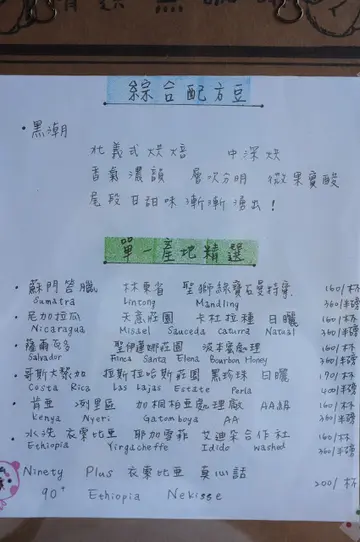 綜合配方豆
・黑潮
北義式烘焙 中深烘
香氣濃韻 層次分明 微果實酸
尾段甘甜味漸漸湧出!
單一產地精選
・蘇門答臘 林東省 聖獅絲寶石曼特寧 160/杯
Sumatra Lintong Mandling 360/半磅
・尼加拉瓜 天意莊園 卡杜拉種 日曬 160/杯
Nicaragua Misael Sauceda Caturra Natual 360/半磅
・薩爾瓦多 聖伊蓮娜莊園 波本蜜處理 160/杯
Salvador Finca Santa Elena Bourbon Honey 360/半磅
・哥斯大黎加 拉斯拉哈斯莊園 黑珍珠 日曬 170/杯
Costa Rica Las Lajas Estate Perla 400/半磅
・肯亞 涅里區 加桐柏亞處理廠 AA級 160/杯
Kenya Nyeri Gatomboya AA 360/半磅
・水洗 衣索比亞 耶加雪菲 艾迪朵合作社 160/杯
Ethiopia Yirgacheffe Idido washed 360/半磅
Ninety Plus 衣索比亞 真心話 200/杯
90⁺ Ethiopia Nekisse